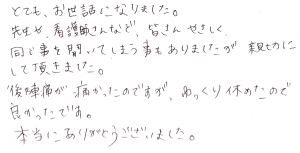 とても、お世話になりました。
先生や、看護師さんなど、皆さんやさしく、
同じ事を聞いてしまう事もありましたが親切に
して頂きました。
後陣痛が痛かったのですが、ゆっくり休めたので
良かったです。
本当にありがとうございました。